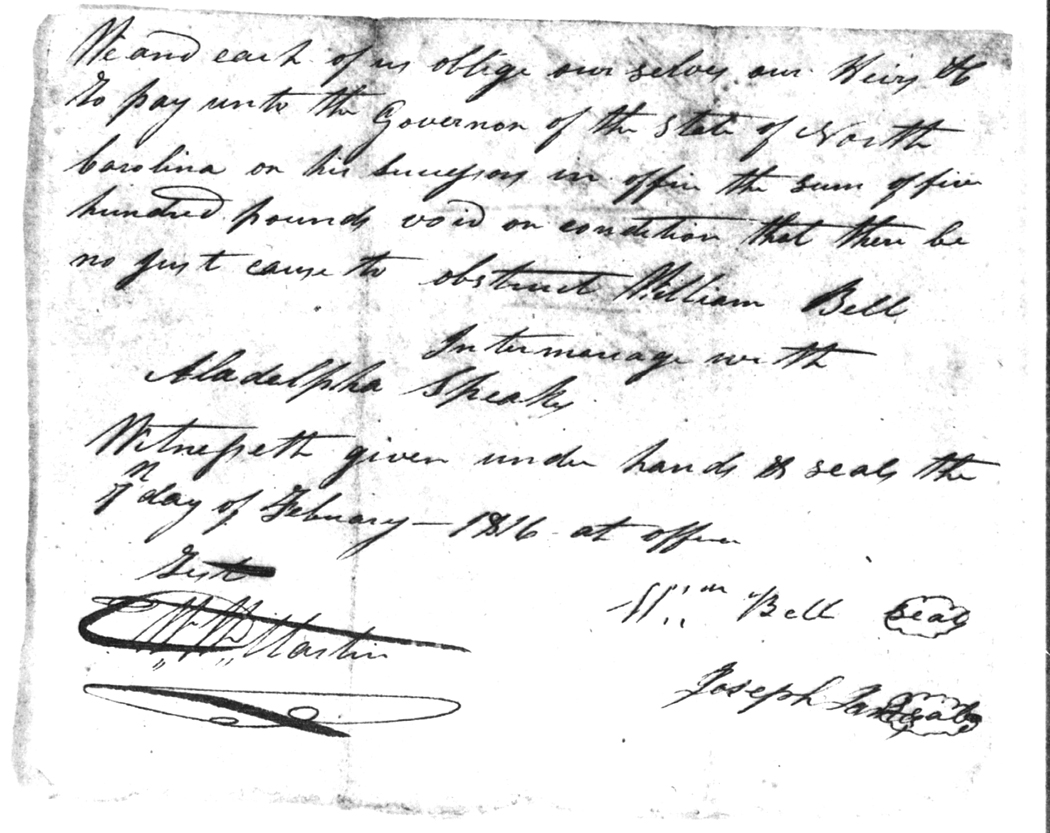 We and each of us oblige our selves our Heirs &c
To pay unto the Governor of the State of North
Carolina or his successors in office the sum of five
hundred pounds void on condition that there be
no just cause to obstruct William Bell
Intermarriage with
Aladelpha Speaks
Witnesseth given under hands & seals the
7th day of February – 1816 at office
Test
Wm Bell seal
W. W. Martin
Joseph seal